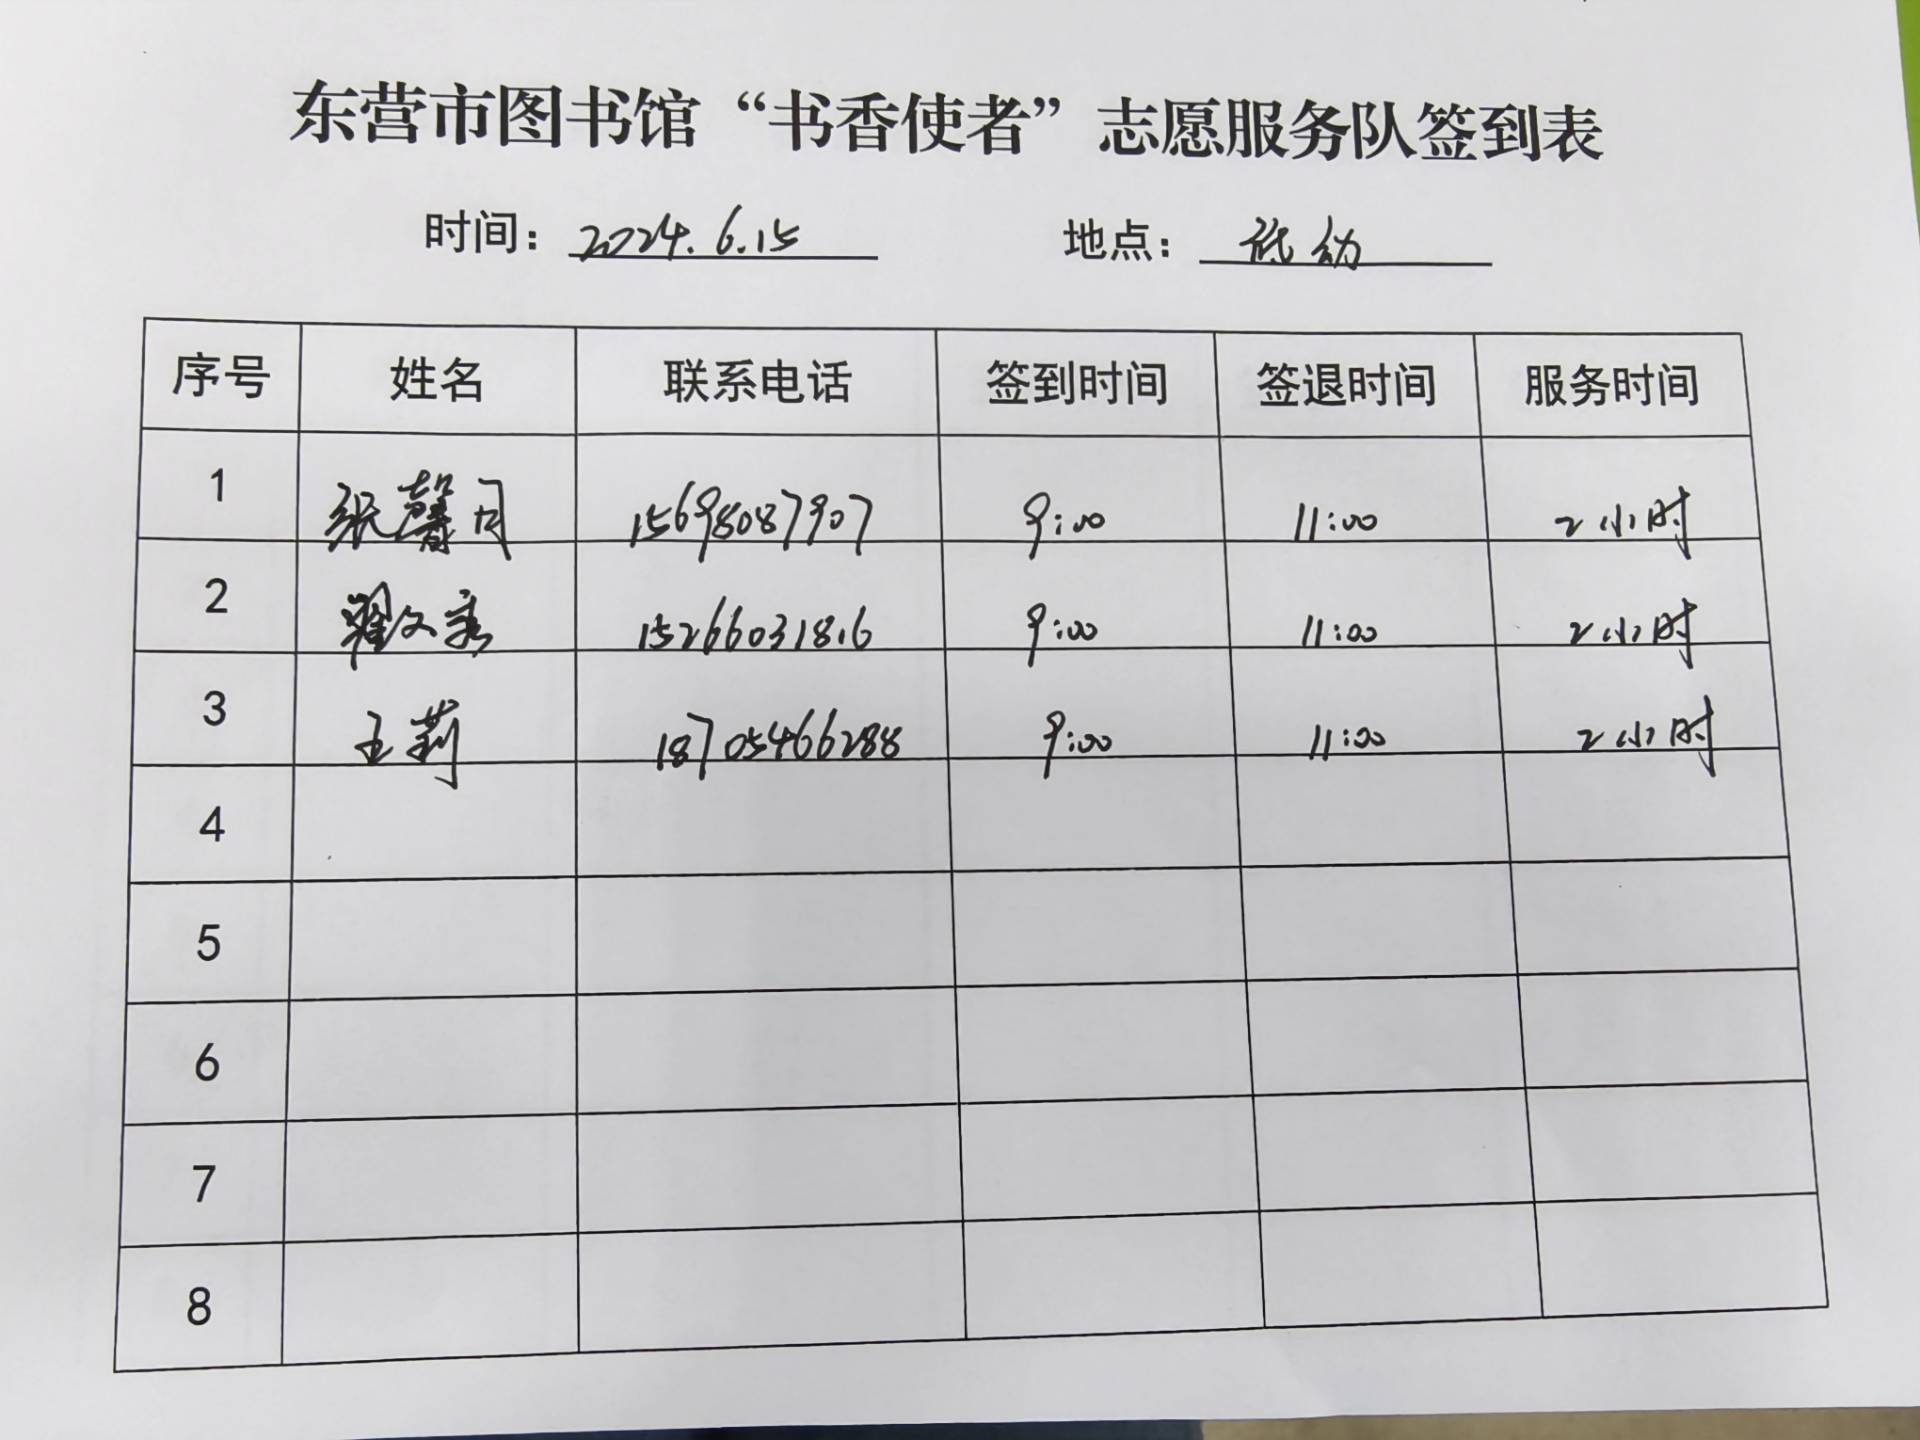 东营市图书馆“书香使者”志愿服务队签到表
时间：2024.6.15 地点：
序号 姓名 联系电话 签到时间 签退时间 服务时间
1 张馨月 15698087907 9:00 11:00 2小时
2 翟文 15266031816 9:00 11:00 2小时
3 王莉 18705466288 9:00 11:00 2小时
4
5
6
7
8